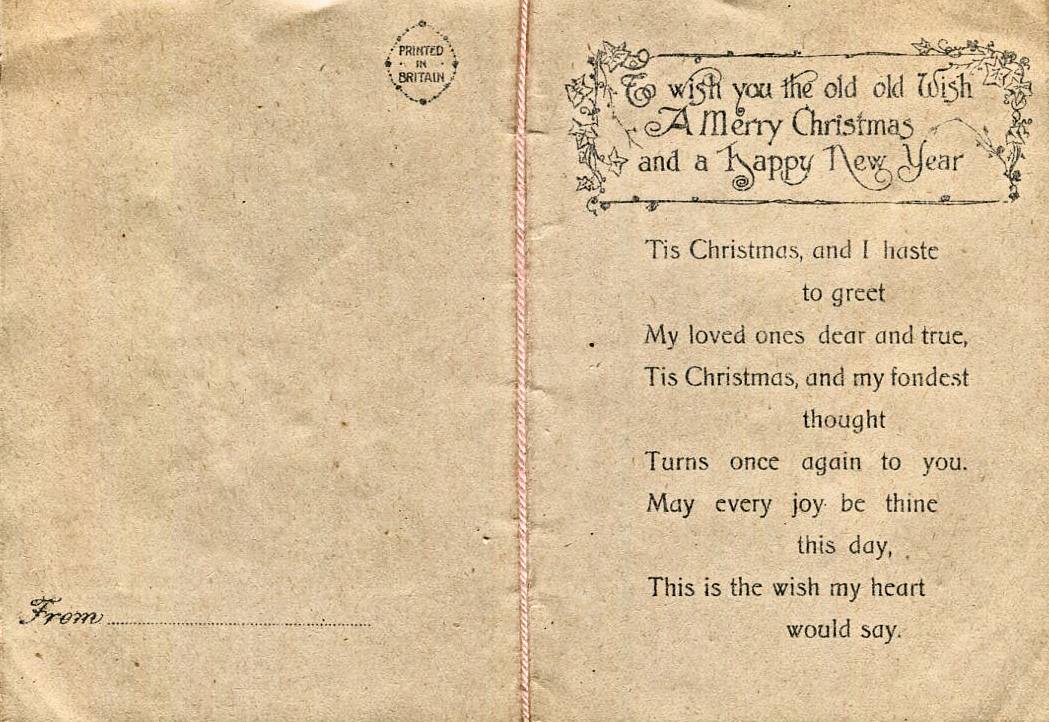 PRINTED
IN
BRITAIN
From
To wish you the old old Wish
A Merry Christmas
and a Happy New Year
'Tis Christmas, and I haste
to greet
My loved ones dear and true,
Tis Christmas, and my fondest
thought
Turns once again to you.
May every joy be thine
this day,
This is the wish my heart
would say.